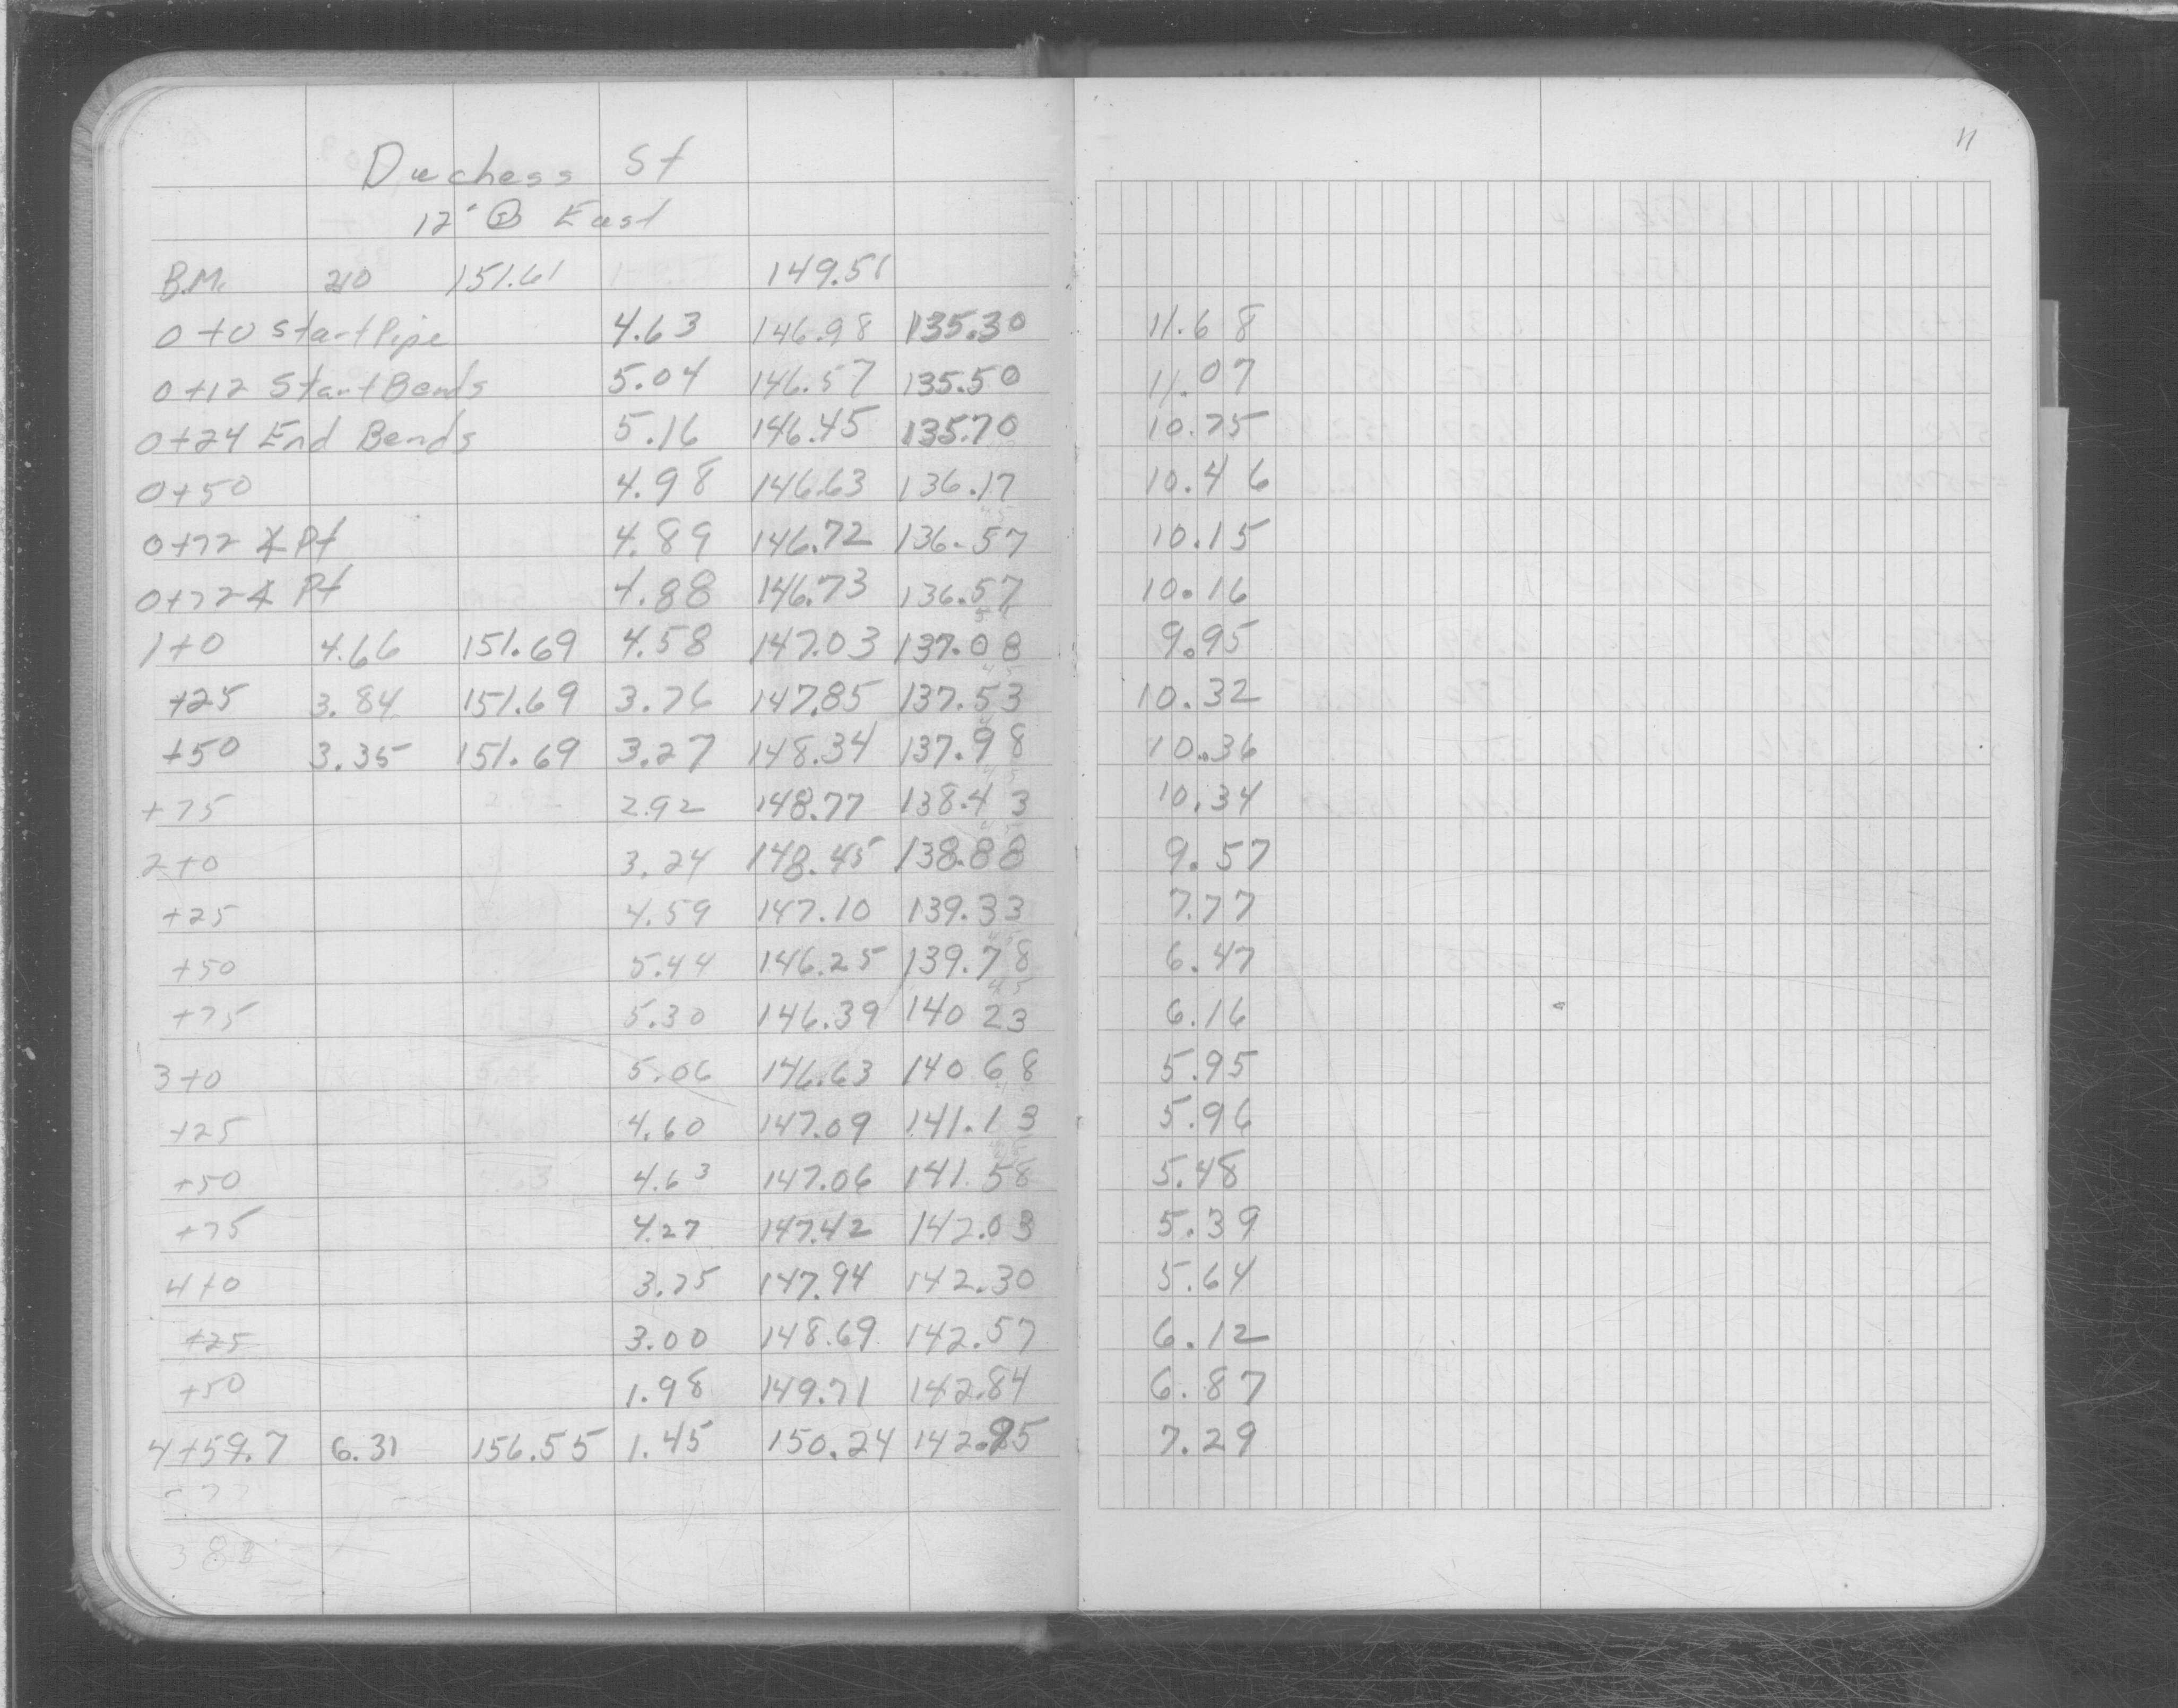 11
Duchess St
12" @ East
B.M. 210 151.61 149.51
0+0 Start Pipe 4.63 146.98 135.30 11.68
0+12 Start Bends 5.04 146.57 135.50 11.07
0+24 End Bends 5.16 146.45 135.70 10.75
0+50 4.98 146.63 136.17 10.46
0+72 ∡ Pt 4.89 146.72 136.57 10.15
0+72 ∡ Pt 4.88 146.73 136.57 10.16
1+0 4.66 151.69 4.58 147.03 137.08 9.95
+25 3.84 151.69 3.76 147.85 137.53 10.32
+50 3.35 151.69 3.27 148.34 137.98 10.36
+75 2.92 148.77 138.43 10.34
2+0 3.24 148.45 138.88 9.57
+25 4.59 147.10 139.33 7.77
+50 5.44 146.25 139.78 6.47
+75 5.30 146.39 140 23 6.16
3+0 5.06 146.63 140 68 5.95
+25 4.60 147.09 141.13 5.96
+50 4.63 147.06 141.58 5.48
+75 4.27 147.42 142.03 5.39
4+0 3.75 147.94 142.30 5.64
+25 3.00 148.69 142.57 6.12
+50 1.98 149.71 142.84 6.87
4+59.7 6.31 156.55 1.45 150.24 142.95 7.29